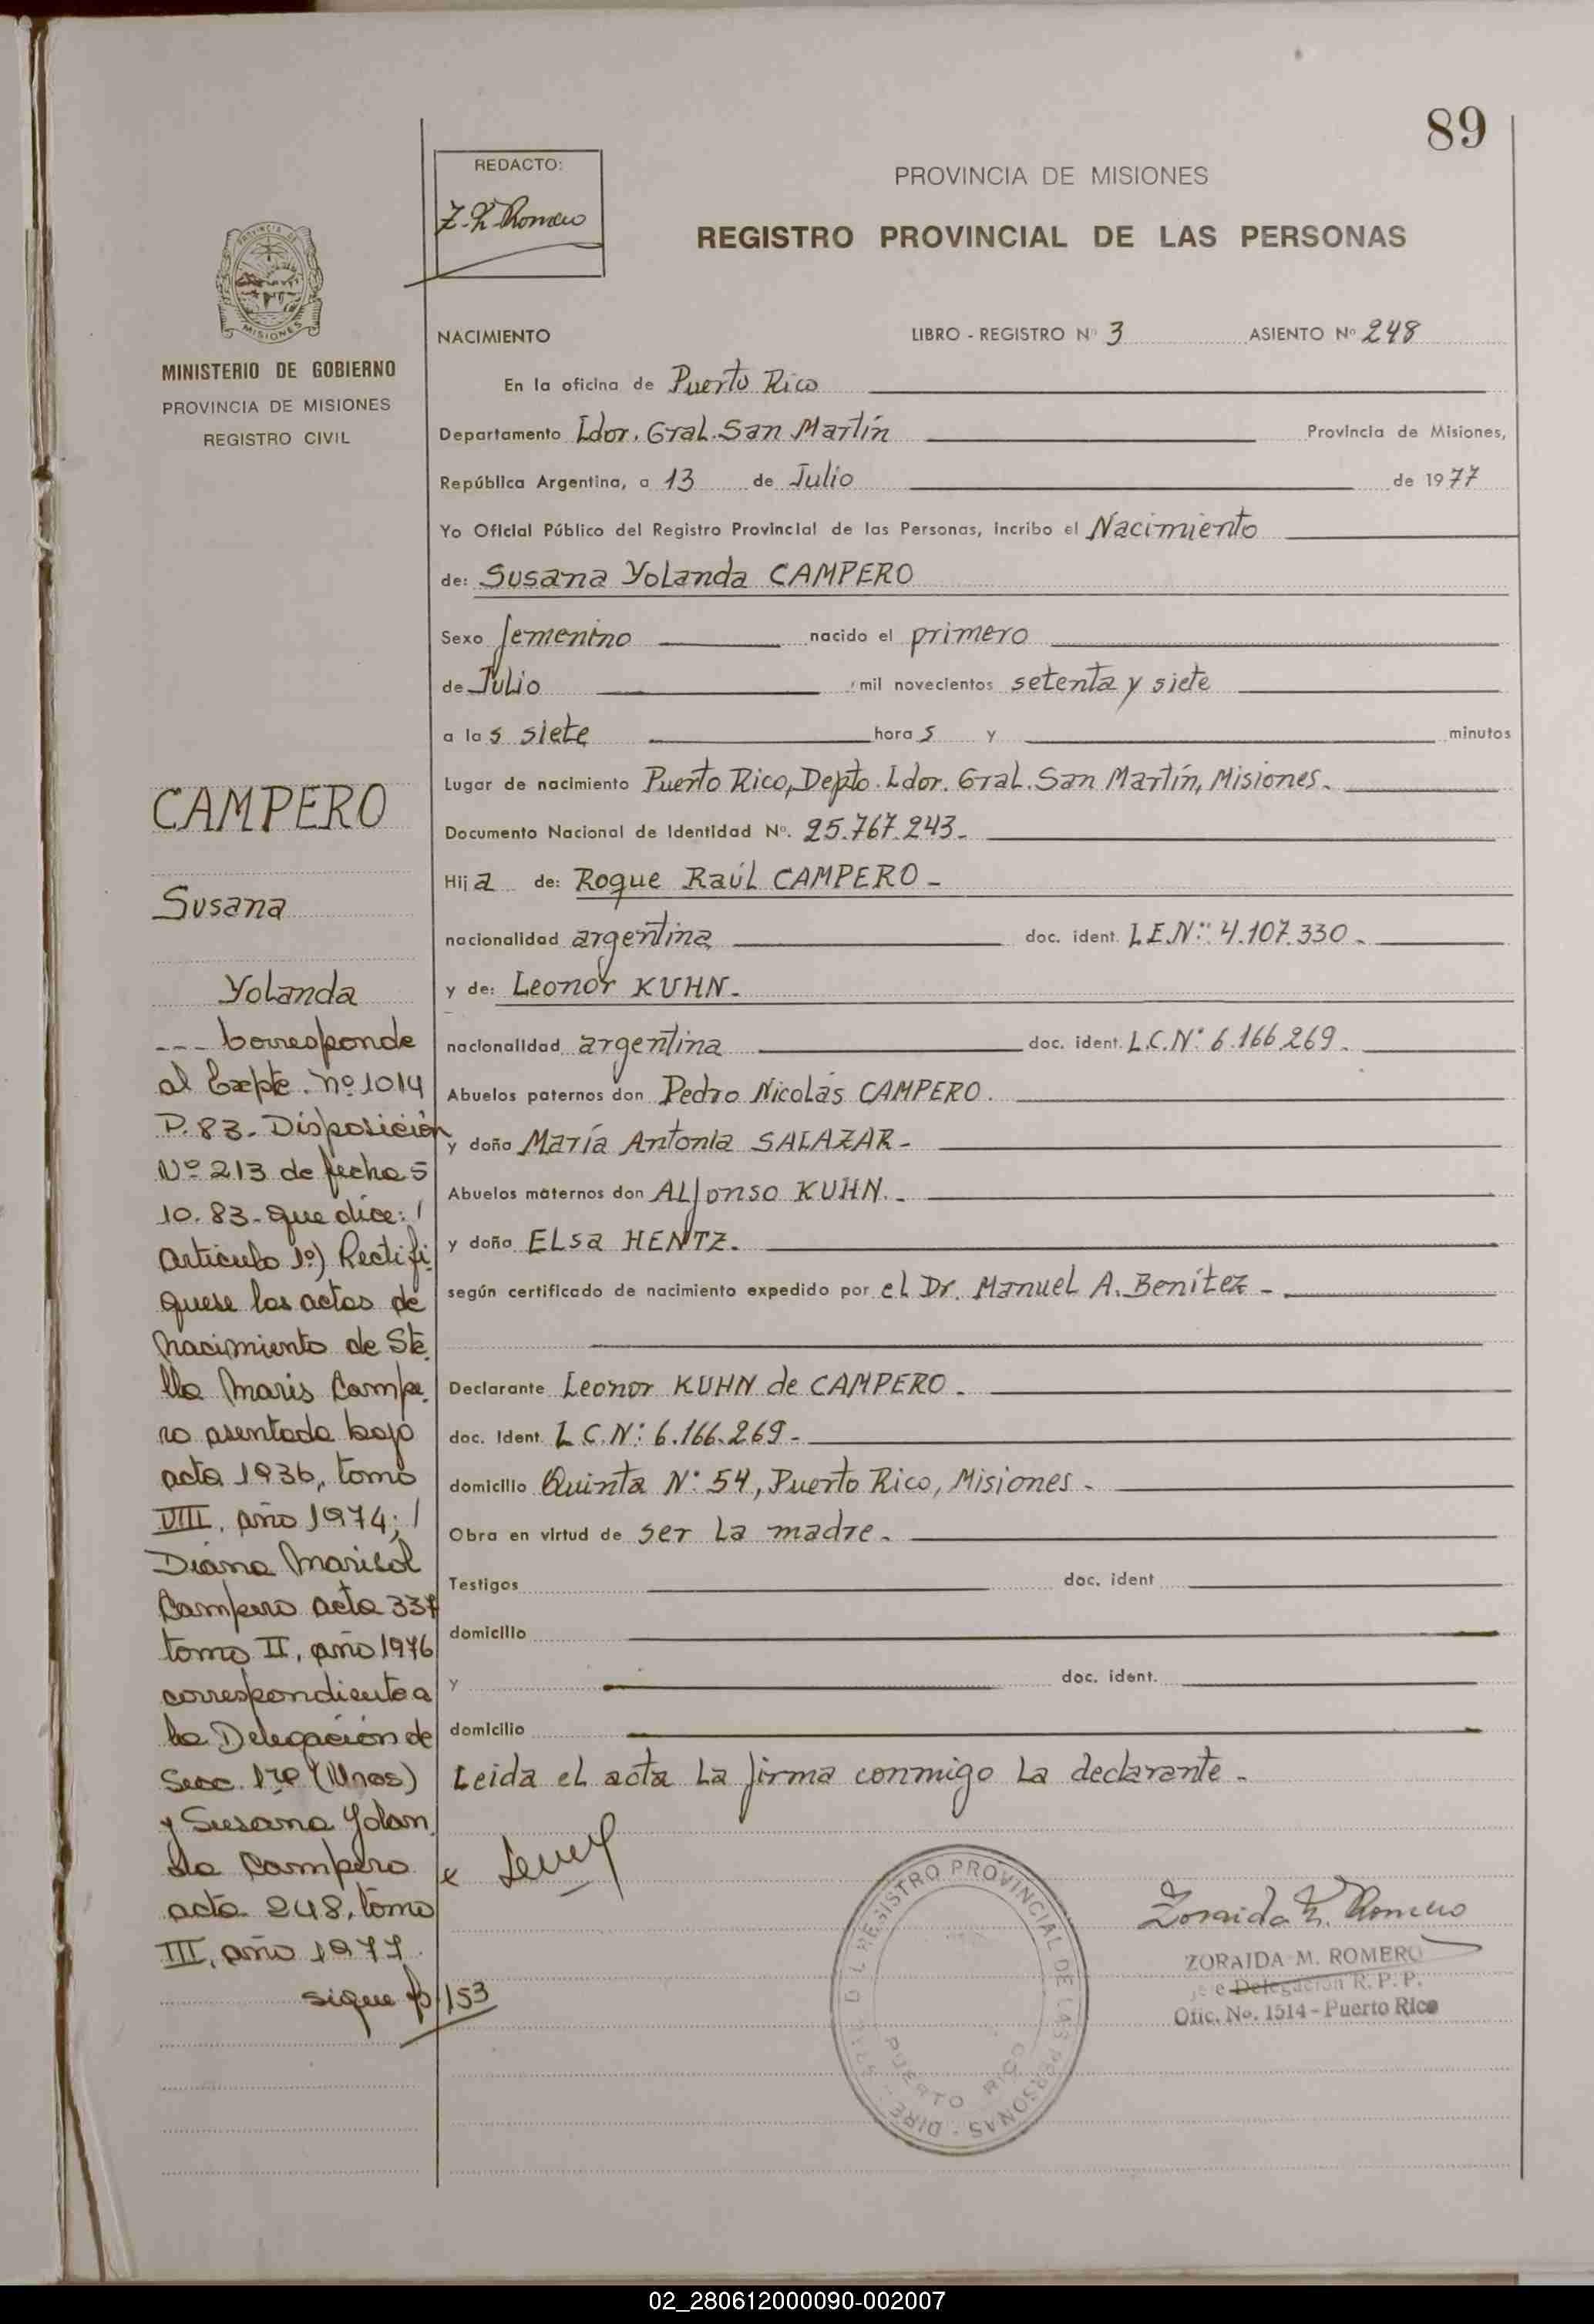 89
REDACTO:
Z. R. Romero
PROVINCIA DE MISIONES
REGISTRO PROVINCIAL DE LAS PERSONAS
PROVINCIA DE
MISIONES
MINISTERIO DE GOBIERNO
PROVINCIA DE MISIONES
REGISTRO CIVIL
NACIMIENTO LIBRO - REGISTRO Nº 3 ASIENTO Nº 248
En la oficina de Puerto Rico
Departamento Ldor. Gral. San Martín Provincia de Misiones,
República Argentina, a 13 de Julio de 1977
Yo Oficial Público del Registro Provincial de las Personas, incribo el Nacimiento
de: Susana Yolanda CAMPERO
Sexo femenino nacido el primero
de Julio mil novecientos setenta y siete
a las siete horas y minutos
Lugar de nacimiento Puerto Rico, Depto. Ldor. Gral. San Martín, Misiones.
Documento Nacional de Identidad Nº. 25.767.243.-
Hija de: Roque Raúl CAMPERO -
nacionalidad argentina doc. ident. L.E.Nº: 4.107.330.-
y de: Leonor KUHN.-
nacionalidad argentina doc. ident. L.C.Nº 6.166.269.-
Abuelos paternos don Pedro Nicolás CAMPERO.
y doña María Antonia SALAZAR-
Abuelos maternos don ALfonso KUHN.-
y doña ELsa HENTZ.
según certificado de nacimiento expedido por el Dr. Manuel A. Benítez -
Declarante Leonor KUHN de CAMPERO.
doc. Ident. L.C.Nº: 6.166.269-
domicilio Quinta Nº 54, Puerto Rico, Misiones-
Obra en virtud de ser la madre.
Testigos doc. ident
domicilio
y doc. ident.
domicilio
Leida el acta la firma conmigo la declarante-
CAMPERO
Susana
Yolanda
--- Corresponde
al Expte. nº 1014
P. 83- Disposición
Nº 213 de fecha 5
10.83- que dice: /
Artículo 1º) Rectifi
quese las actas de
Nacimiento de Ste
lla Maris Campe
ro asentada bajo
acta 1936, tomo
VIII, año 1974; /
Diana Marisol
Campero acta 337
tomo II, año 1976
correspondiente a
la Delegación de
Secc. 1ra (Unos)
y Susana Yolan
da Campero
acta 248, tomo
III, año 1977.
sigue fº 153
REGISTRO PROVINCIAL DE LAS PERSONAS - DIRE
PUERTO RICO
Zoraida M. Romero
ZORAIDA M. ROMERO
Jefe Delegación R. P. P.
Ofic. No. 1514 - Puerto Rico
02_280612000090-002007